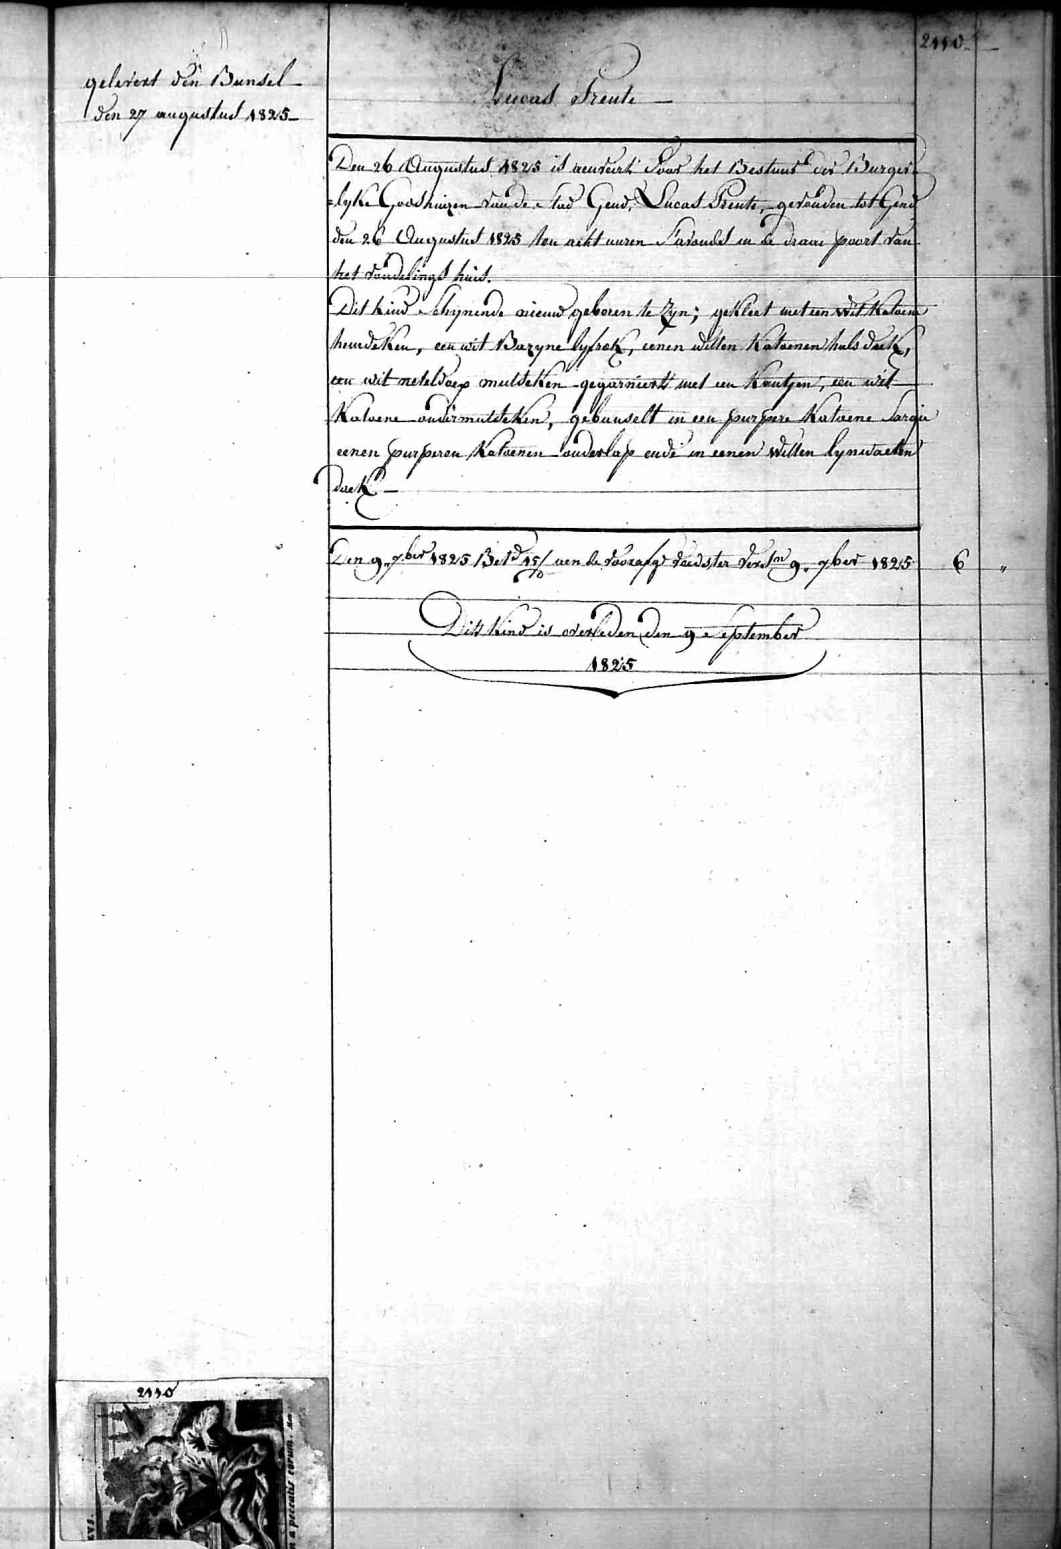 2110
gelevert den Bunsel
den 27 augustus 1825
Lucas Trente
Den 26 Augustus 1825 is aenveird door het Bestuur der Burger-
=lyke Godshuizen van de Stad Gend, Lucas Trente, gevonden tot Gend
den 26 Augustus 1825 ten acht uuren s'avonds in de draai poort van
het vondelings huis.
Dit kind schynende nieuw geboren te zyn; gekleet met een wit katoene
hemdeken, een wit Bazyne lyfrok, eenen witten katoenen halsdoek,
een wit neteldoex mutsken gegarnieerd met een kantjen, een wit
katoene ondermutsken, gebunselt in een purpere katoene sargie
eenen purperen katoenen onderlap ende in eenen witten lynwaeten
doek
Den 9 7ber 1825 Bet.d 15/ aen de voorafg voedster verst.n 9 7ber 1825 6 "
Dit kind is overleden den 9 September
1825
2110